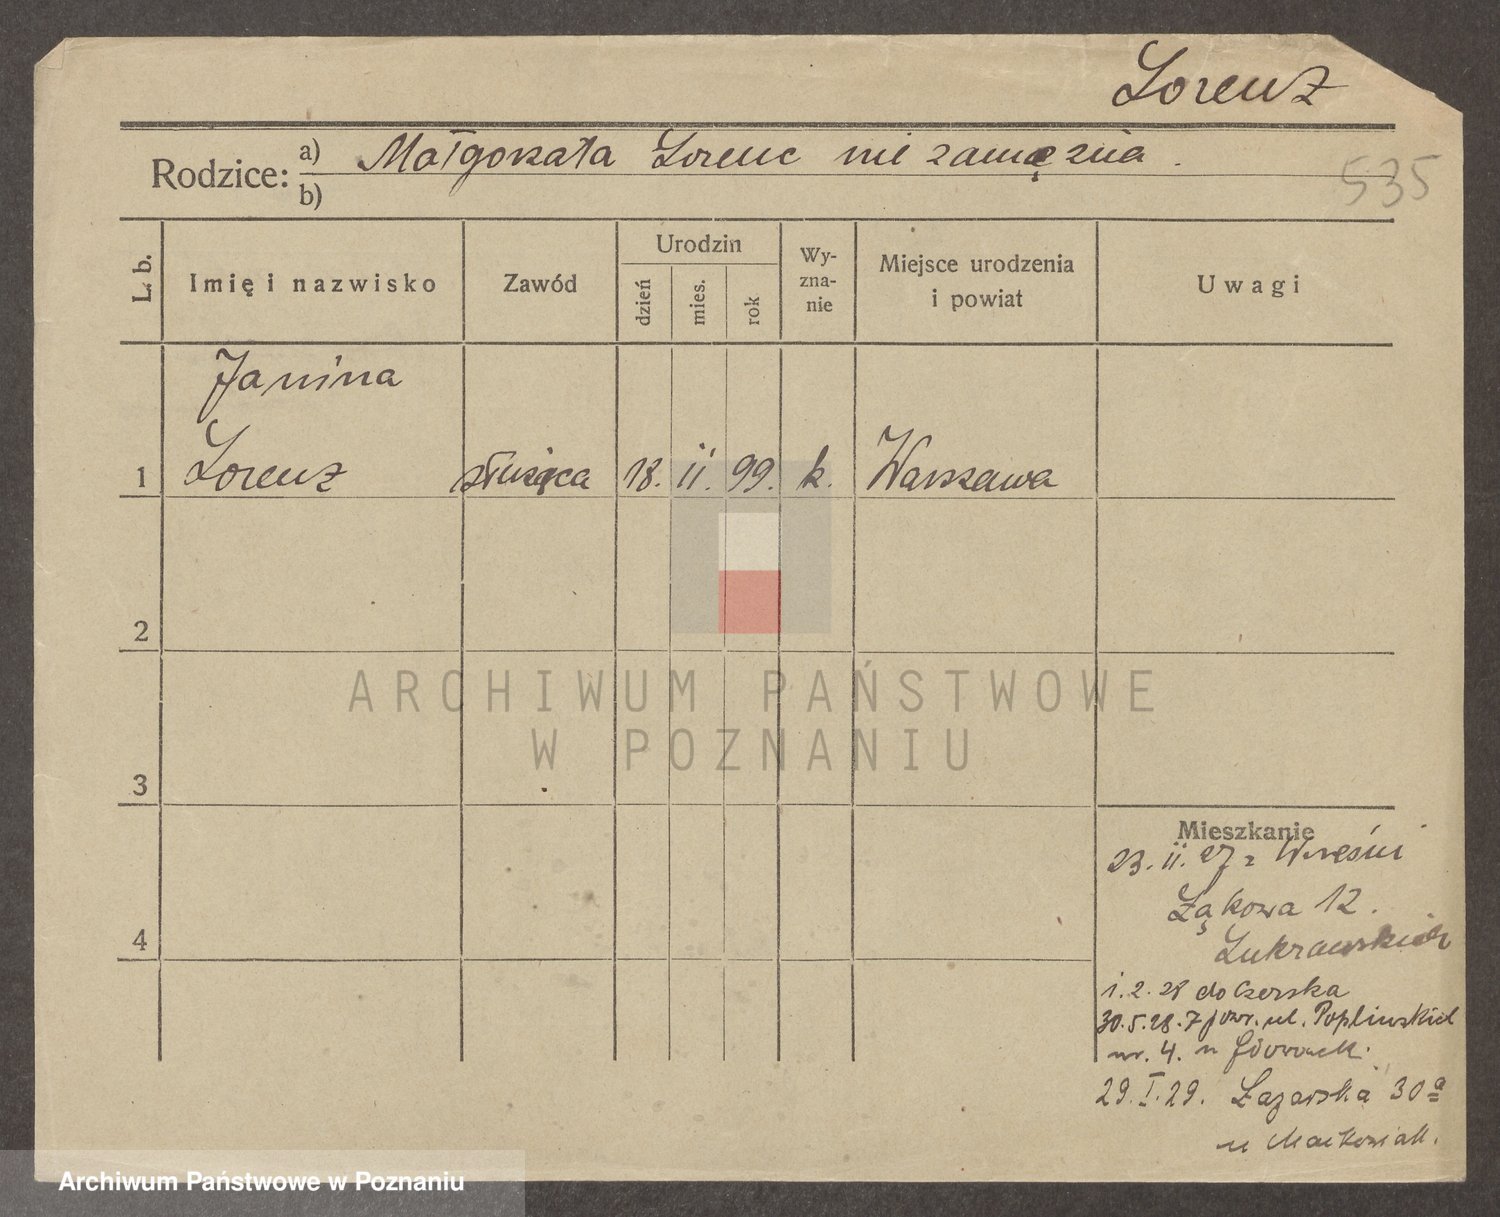 Lorenz
Rodzice: a) Małgorzata Lorenc nie zamężna .
b)
535
L. b.
Imię i nazwisko
Zawód
Urodzin
dzień
mies.
rok
Wy-
zna-
nie
Miejsce urodzenia
i powiat
Uwagi
Janina
1 Lorenz służąca 18. II. 99. k. Warszawa
2
ARCHIWUM PAŃSTWOWE
W POZNANIU
3
4
Mieszkanie
23. II. 27 z Wreśni
Łąkowa 12.
1. 2. 28 do Czerska
30. 5. 28. z ul. Poplińskich
nr. 4. u
29. I. 29. Łazarska 30 a
u
Archiwum Państwowe w Poznaniu